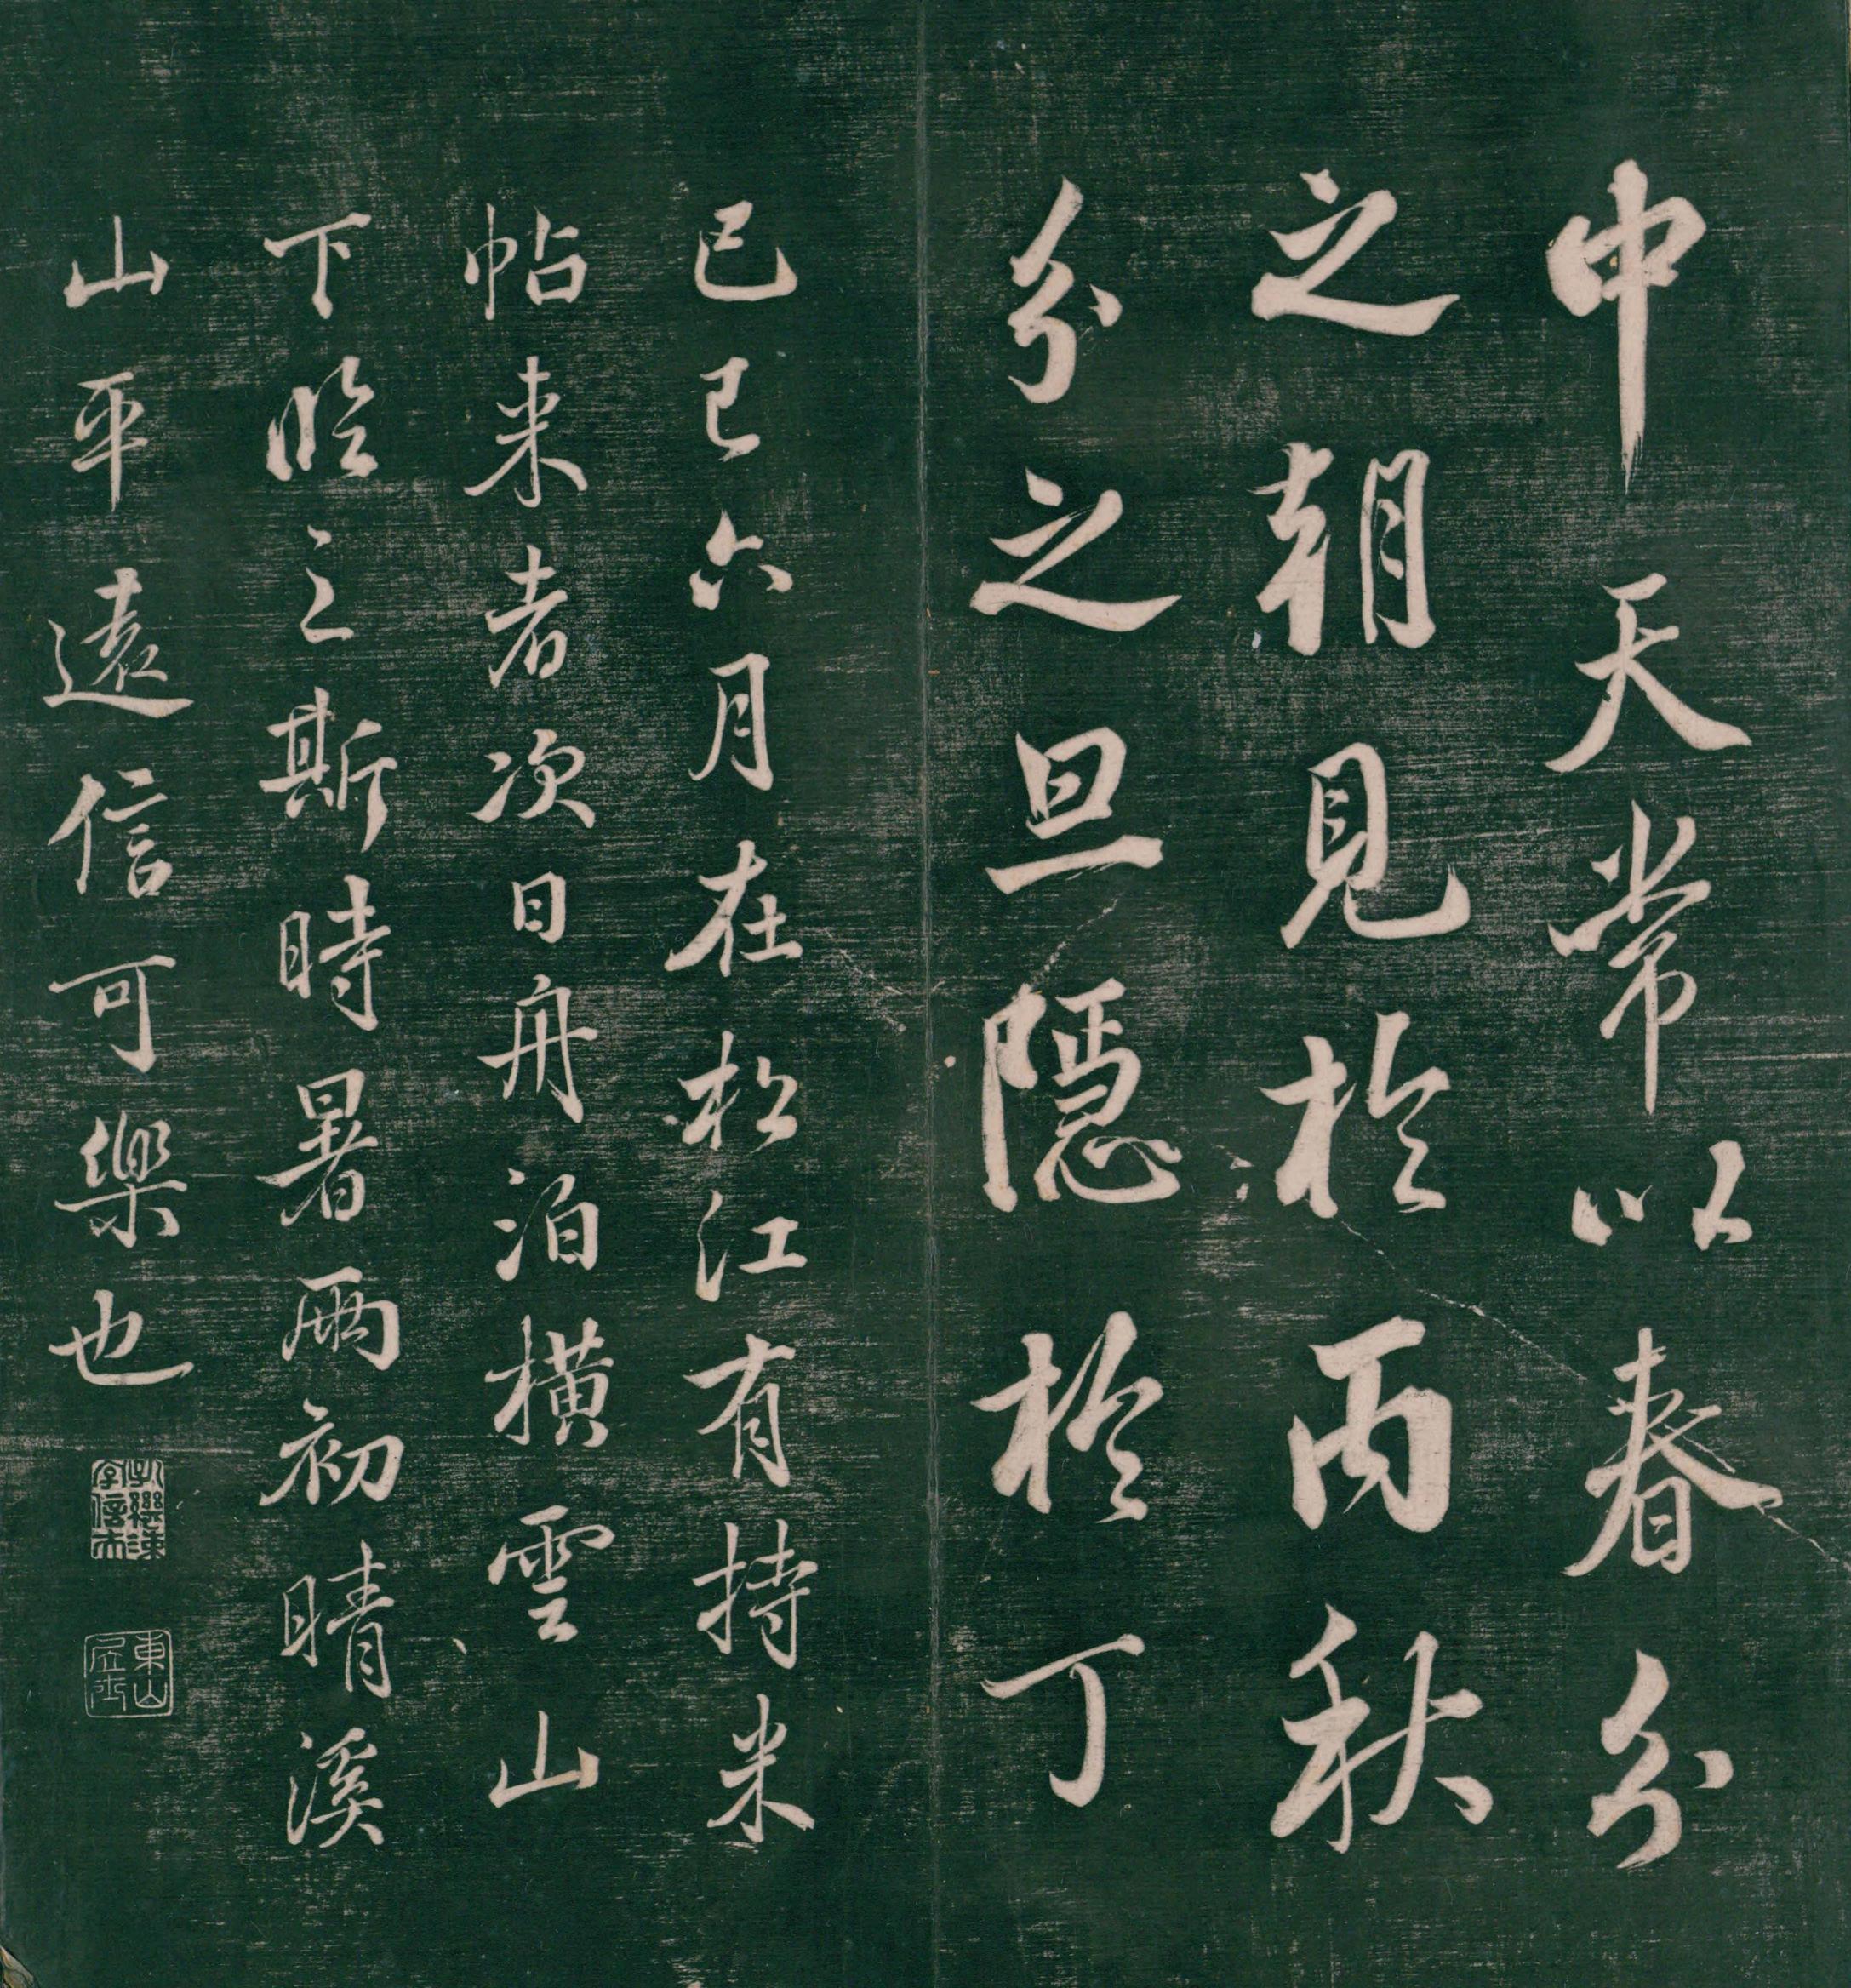 中天常以春分
之朝見於丙秋
分之旦隱於丁
己巳六月在松江有持米
帖来者次日舟泊橫雲山
下臨之斯時暑雨初晴溪
山平遠信可樂也
東山